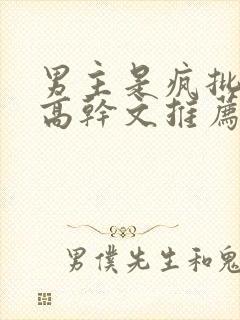 男主是疯批
高幹文推薦
男僕先生和鬼